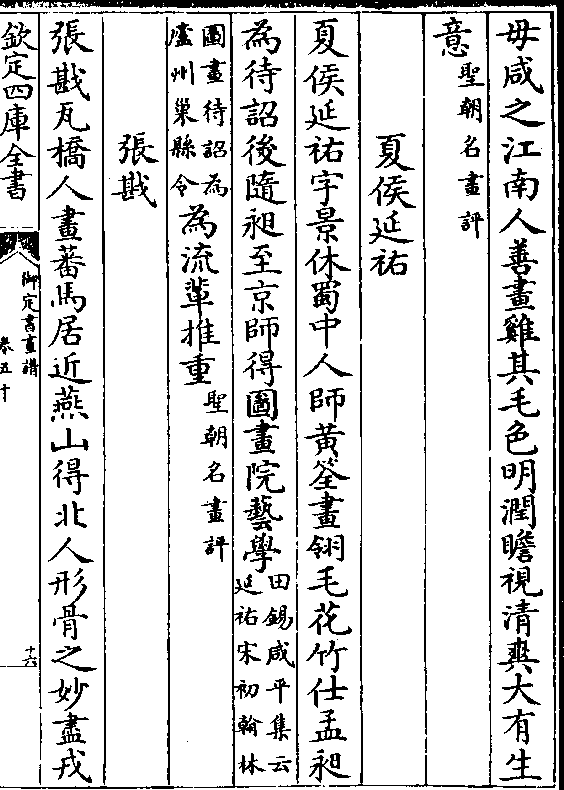 毋咸之江南人善畫雞其毛色明潤瞻視清爽大有生
意聖朝名畫評
夏侯延祐
夏侯延祐字景休蜀中人師黄筌畫翎毛花竹仕孟昶
為待詔後隨昶至京師得圖畫院藝學田錫咸平集云延祐宋初翰林
圖畫待詔為廬州巢縣令為流輩推重聖朝名畫評
張戡
張戡瓦橋人畫蕃馬居近燕山得北人形骨之妙盡戎
欽定四庫全書
御定書畫譜
卷五十
十六